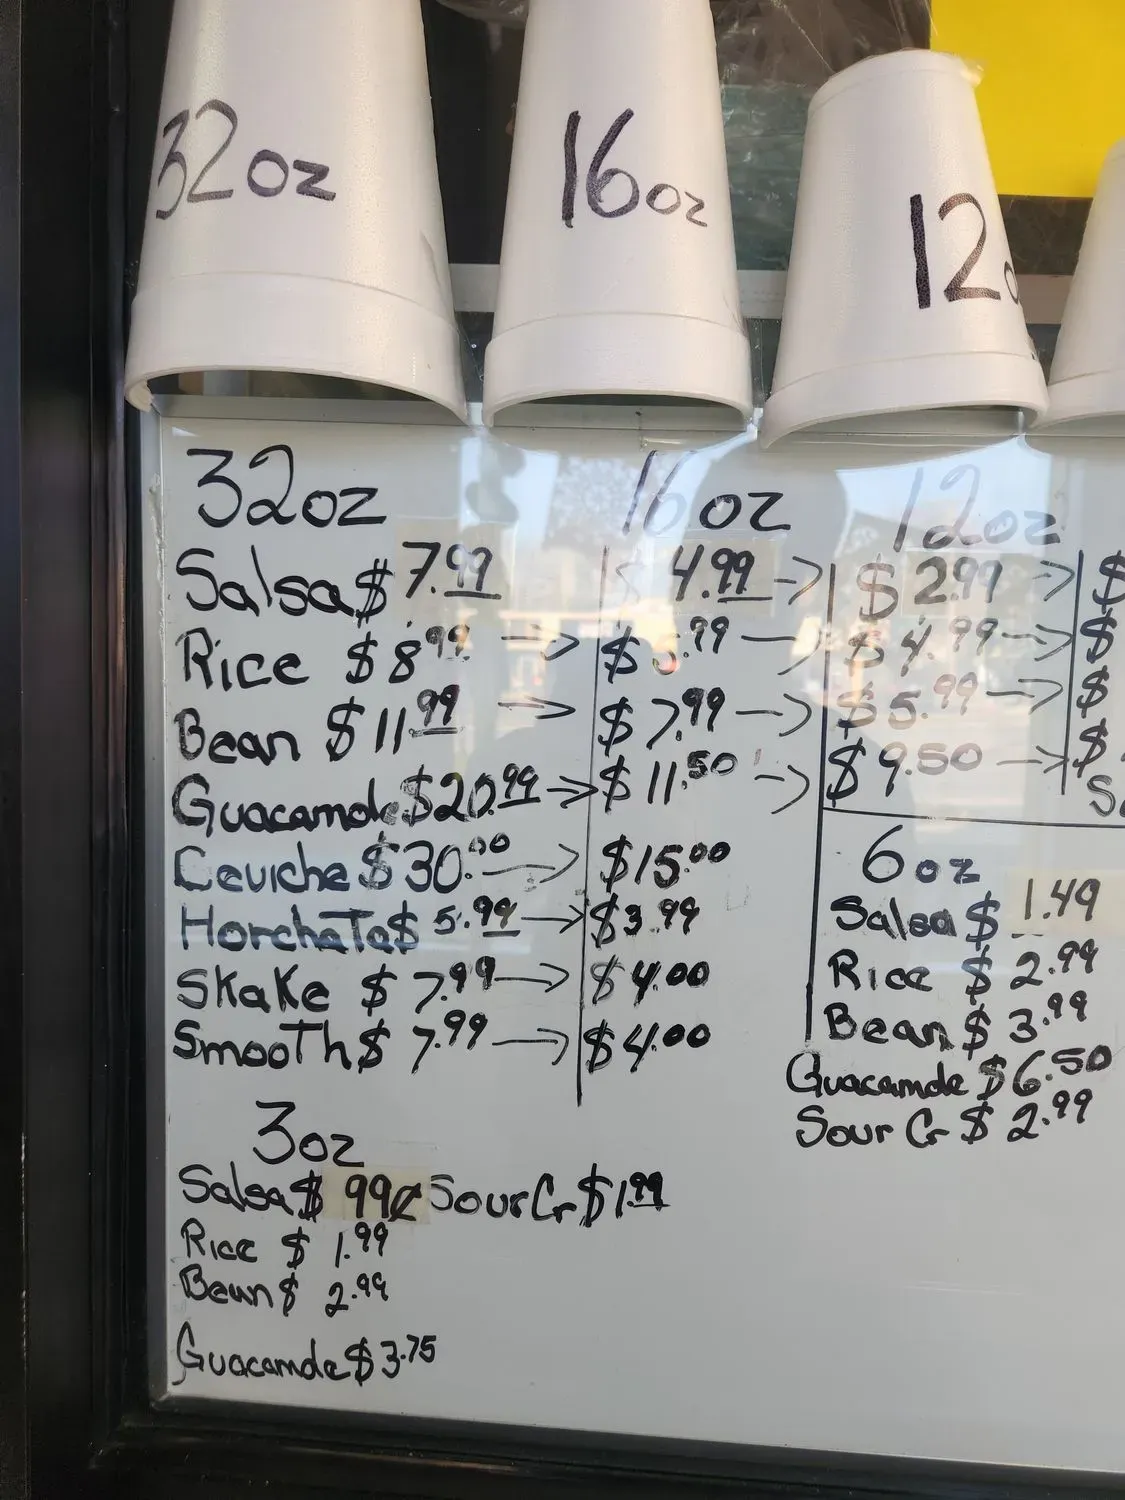 32oz
16oz
12o
32oz 16oz 12oz
Salsa $7.99 $4.99 -> $2.99 -> $
Rice $8.99 -> $5.99 -> $4.99 -> $
Bean $11.99 -> $7.99 -> $5.99 -> $
Guacamole $20.99 -> $11.50 -> $9.50 -> $
Ceviche $30.00 -> $15.00
HorchaTa $5.99 -> $3.99
SKaKe $7.99 -> $4.00
SmooTh $7.99 -> $4.00
6oz
Salsa $1.49
Rice $2.99
Bean $3.99
Guacamole $6.50
Sour Cr $2.99
3oz
Salsa $ 99¢ Sour Cr $1.99
Rice $1.99
Bean $2.99
Guacamole $3.75